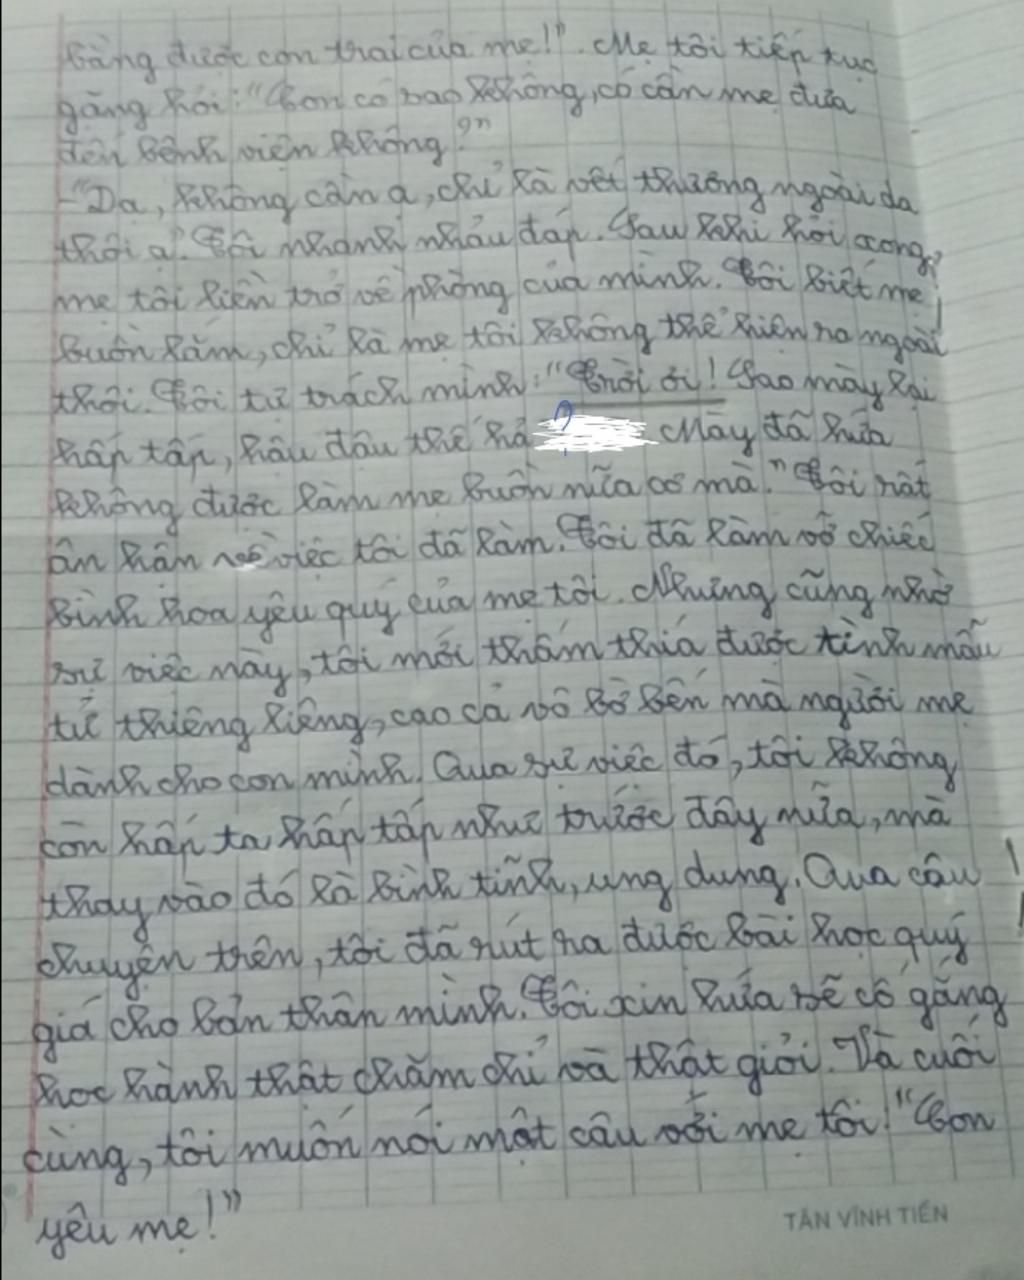 bằng được con trai của mẹ!". Mẹ tôi tiếp tục
gặng hỏi: "Con có sao không, có cần mẹ đưa
đến bệnh viện không?"
-"Dạ, không cần ạ, chỉ là vết thương ngoài da
thôi ạ". Tôi nhanh nhảu đáp. Sau khi hỏi xong,
mẹ tôi liền trở về phòng của mình. Tôi biết mẹ
buồn lắm, chỉ là mẹ tôi không thể hiện ra ngoài
thôi. Tôi tự trách mình: "Trời ơi! Sao mày lại
hấp tấp, hậu đậu thế hả Mày đã hứa
không được làm mẹ buồn nữa cơ mà." Tôi rất
ân hận về việc tôi đã làm. Tôi đã làm vỡ chiếc
bình hoa yêu quý của mẹ tôi. Nhưng cũng nhờ
sự việc này, tôi mới thấm thía được tình mẫu
tử thiêng liêng, cao cả vô bờ bến mà người mẹ
dành cho con mình. Qua sự việc đó, tôi không
còn hấp ta hấp tấp như trước đây nữa, mà
thay vào đó là bình tĩnh, ung dung. Qua câu
chuyện trên, tôi đã rút ra được bài học quý
giá cho bản thân mình. Tôi xin hứa sẽ cố gắng
học hành thật chăm chỉ và thật giỏi. Và cuối
cùng, tôi muốn nói một câu với mẹ tôi! "Con
yêu mẹ!"
TÂN VĨNH TIẾN